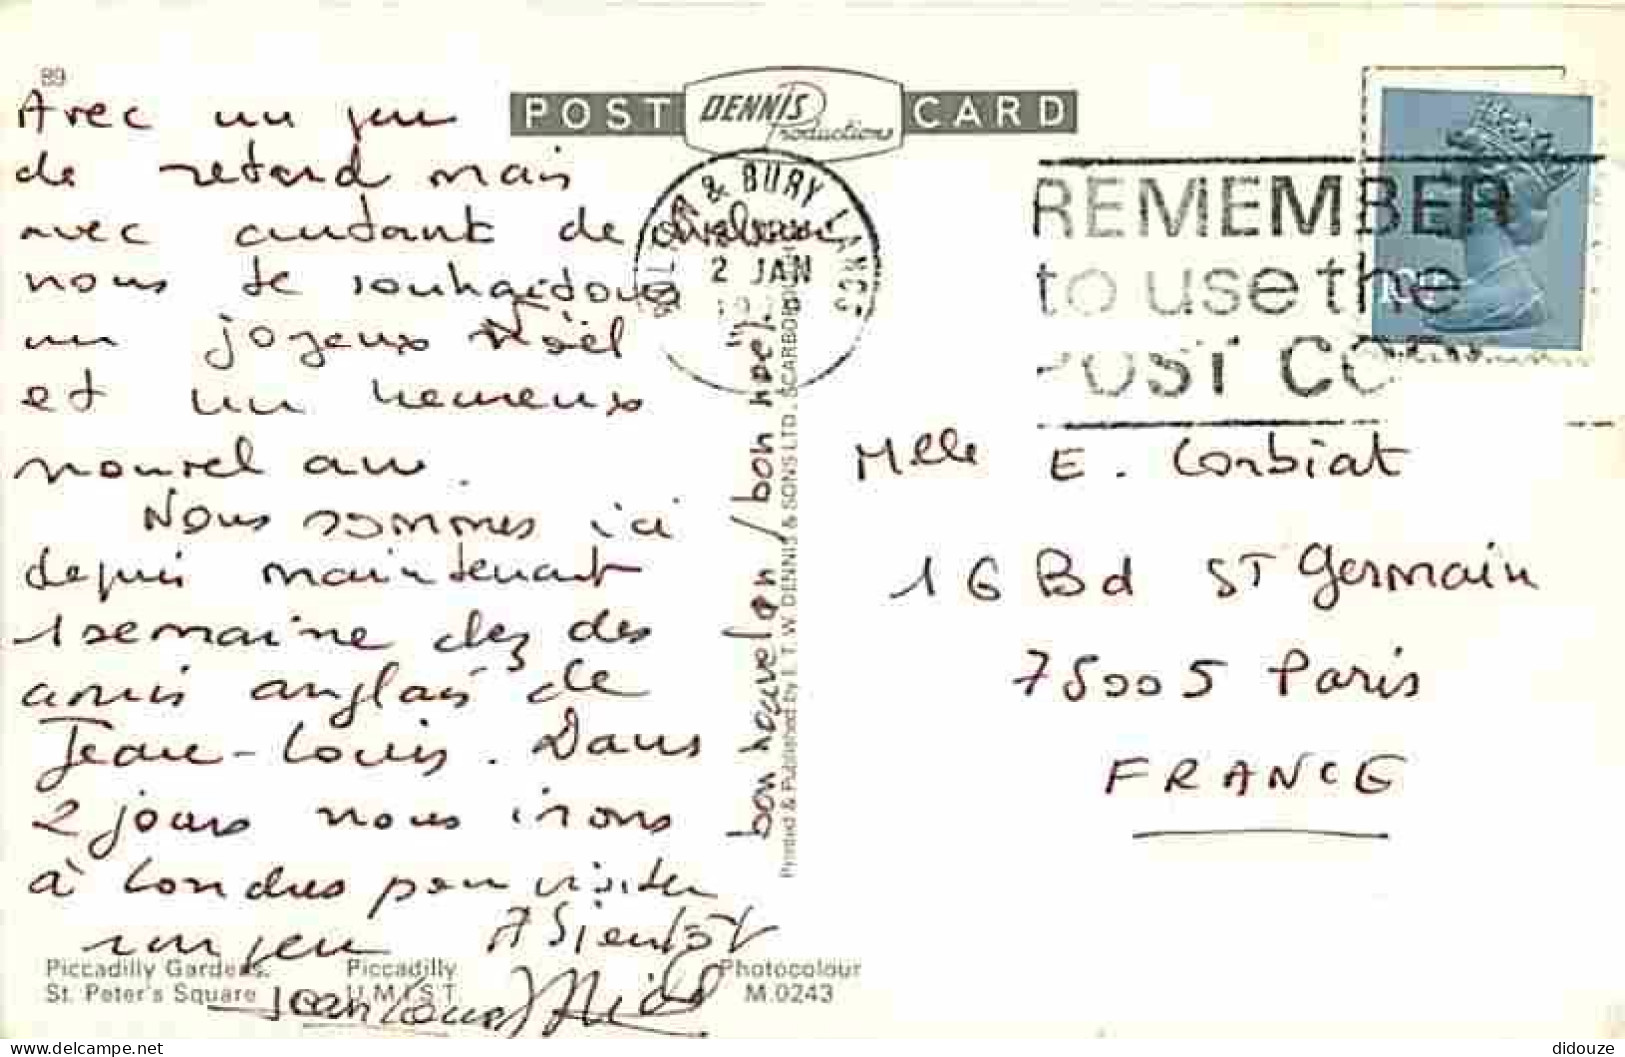 89
POST DENNIS Productions CARD
Avec un peu
de retard mais
avec autant de chaleur,
nous te souhaitons
un joyeux Noël
et un heureux
nouvel an.
Nous sommes ici
depuis maintenant
1 semaine chez des
amis anglais de
Jean-Louis. Dans
2 jours nous irons
à Londres pour visiter
un peu A Bientôt
Jean Louis
bon nouvel an / bon noël !!!
& BURY LANCS
2 JAN
REMEMBER
to use the
POST CO
Printed & Published by E. T. W. DENNIS & SONS LTD., SCARBOROUGH
Mlle E. Corbiat
16 Bd St Germain
75005 Paris
FRANCE
Piccadilly Gardens. Piccadilly Photocolour
St. Peter's Square U.M.I.S.T. M.0243
https://www.delcampe.net didouze